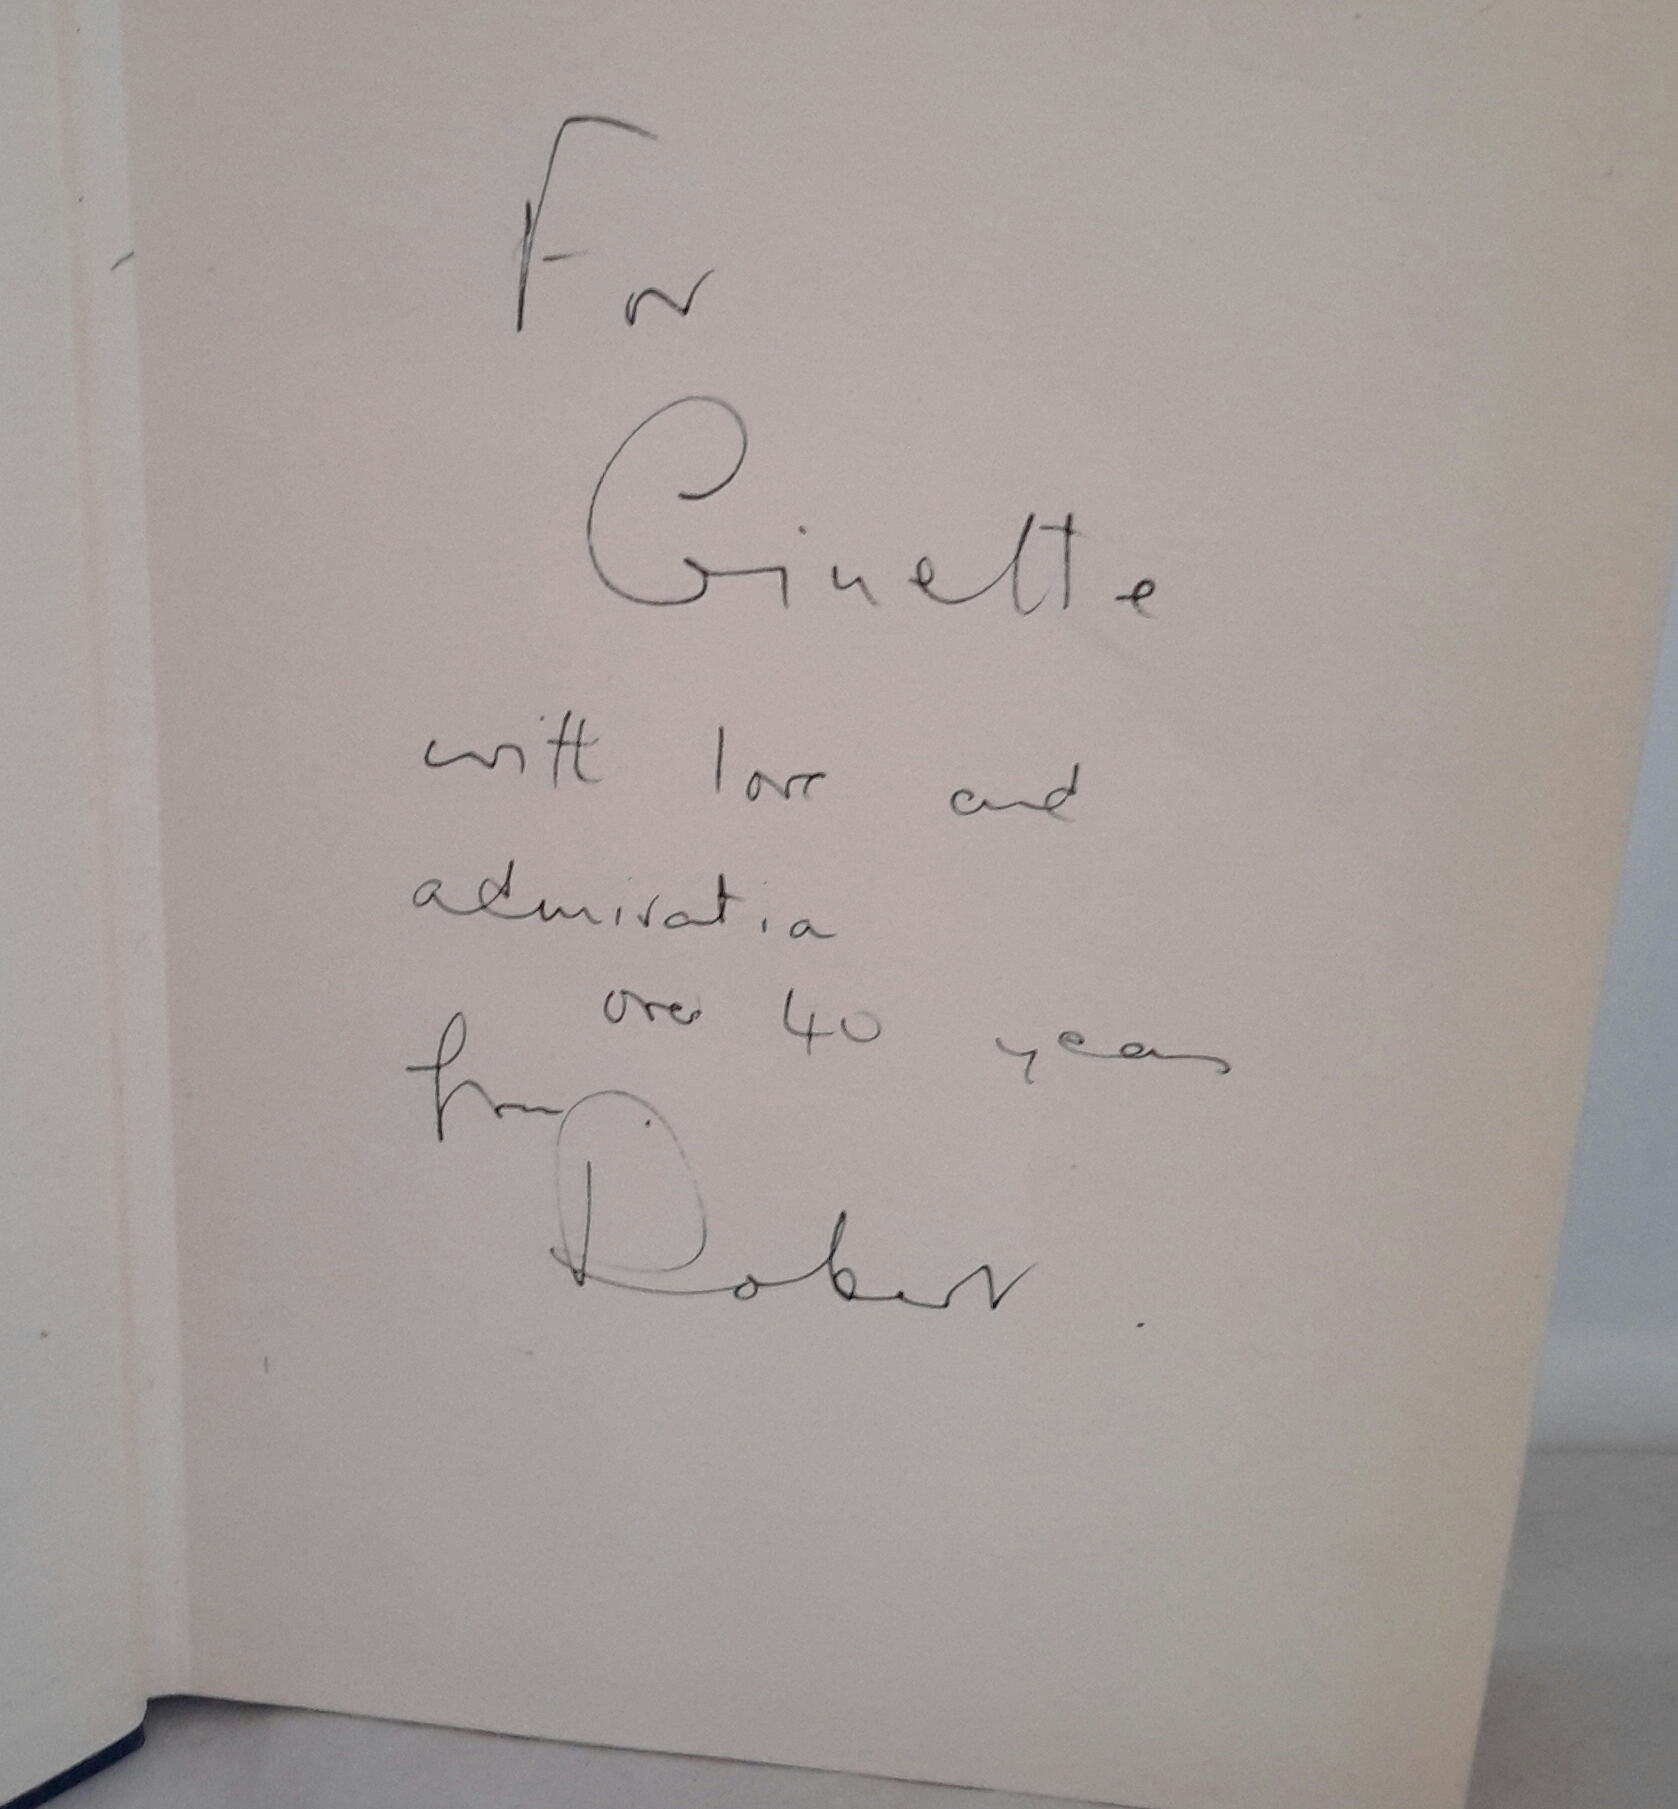 For
Ginette
with love and
admiration
over 40 years
from
Robert.